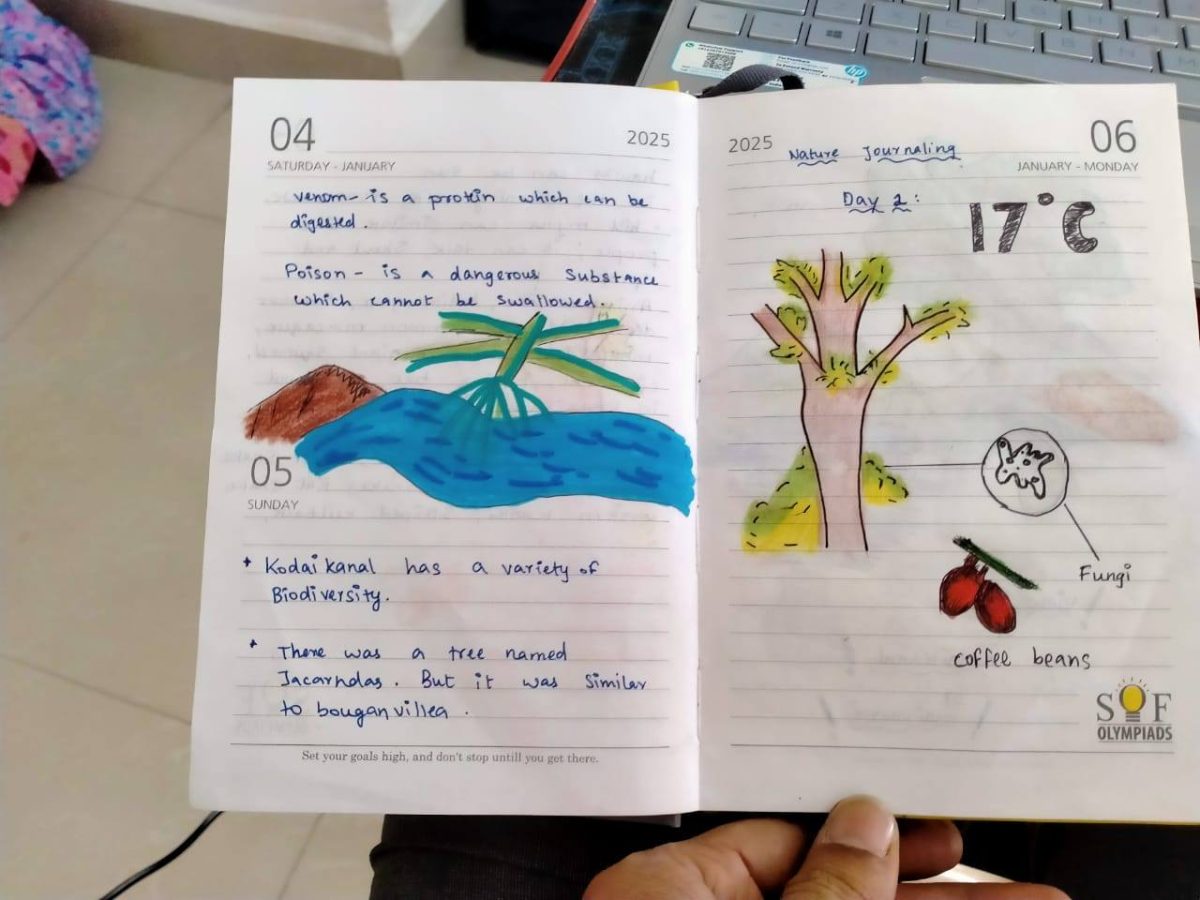 04
2025
SATURDAY - JANUARY
venom- is a protein which can be
digested.
Poison - is a dangerous Substance
which cannot be swallowed.
05
SUNDAY
+ Kodaikanal has a variety of
Biodiversity.
+ There was a tree named
Jacarndas. But it was similar
to bouganvillea.
Set your goals high, and don't stop untill you get there.
2025
Nature Journaling
06
JANUARY - MONDAY
Day 2:
17°C
Fungi
coffee beans
SOF
OLYMPIADS
hp